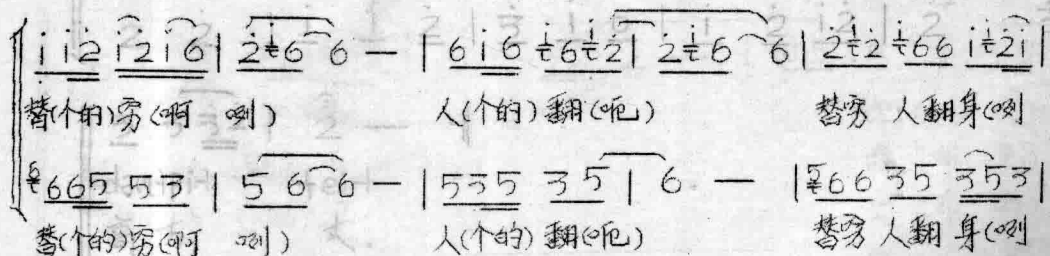 i i 2 i 2 i 6 | 2 i 6 6 — | 6 i 6 i 6 i 2 | 2 i 6 6 | 2 i 2 i 6 6 i i 2 i |
替(个的)穷(啊 咧) 人(个的)翻(呃) 替穷 人翻身(咧
6 6 6 5 5 3 | 5 6 6 — | 5 3 5 3 5 | 6 — | 5 6 6 3 5 3 5 3 |
替(个的)穷(啊 咧) 人(个的)翻(呃) 替穷 人翻身(咧